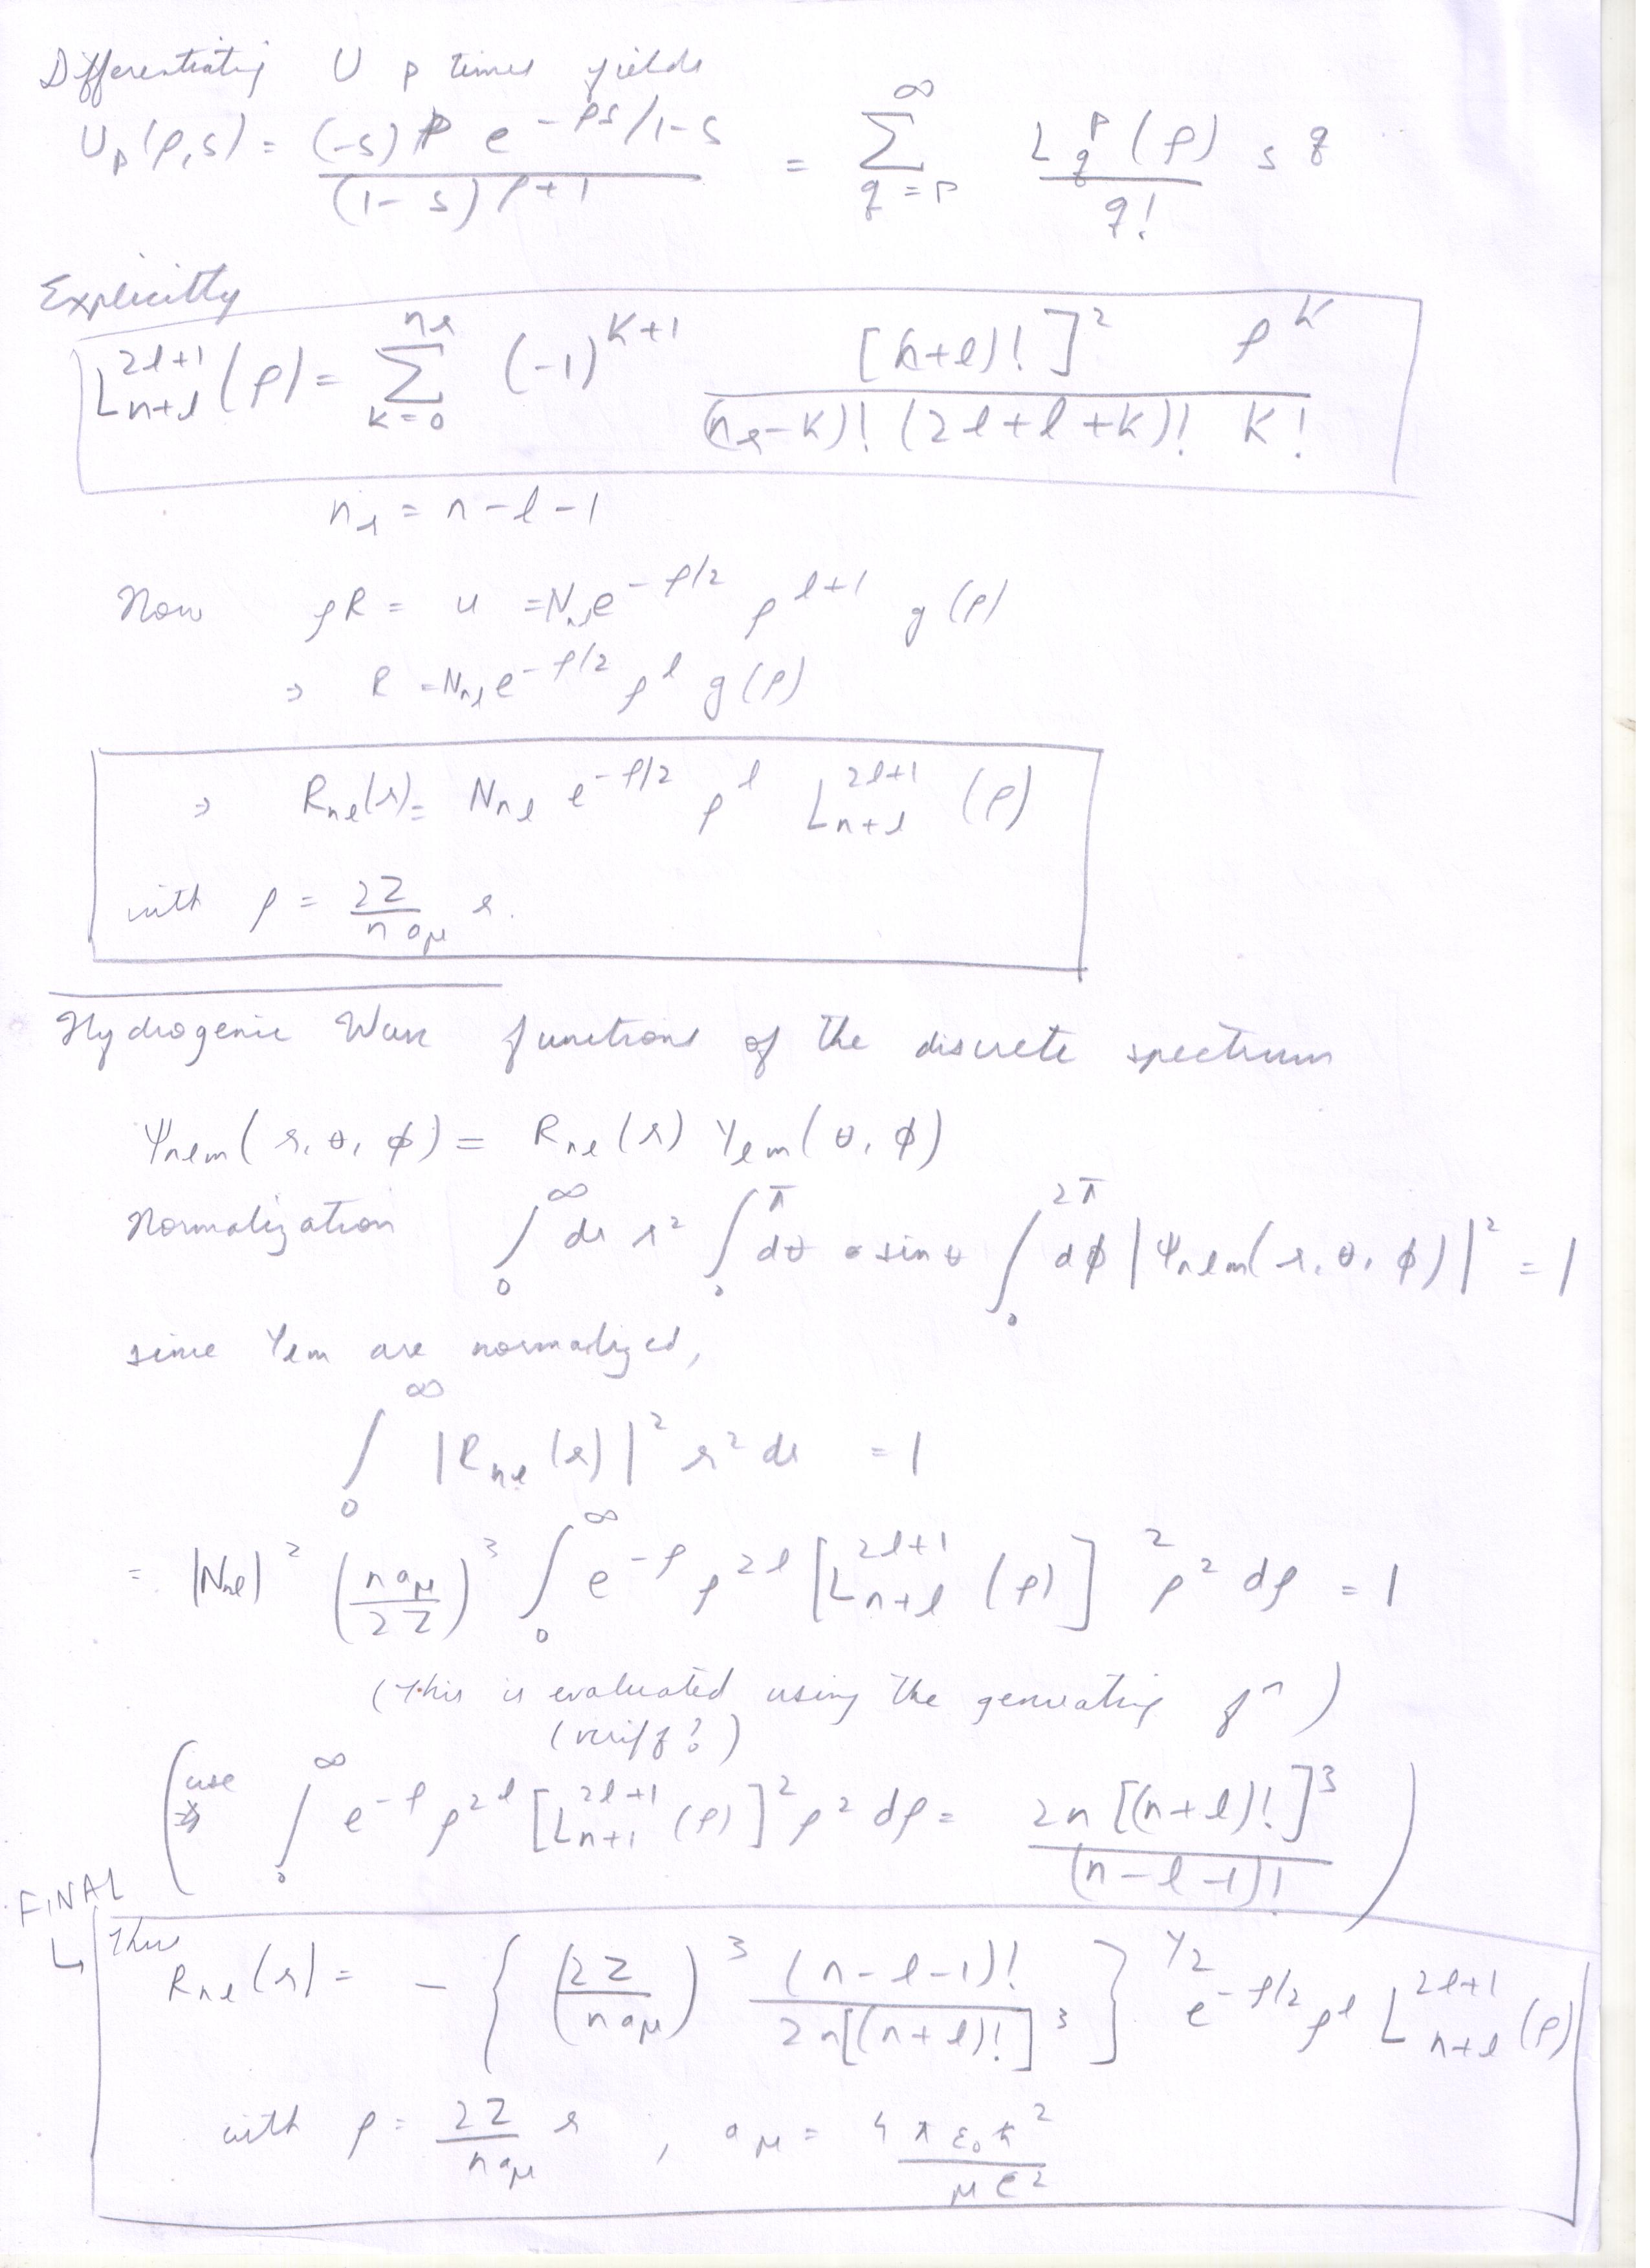 Differentiating U p times yields
U_p(ρ,s) = (-s)^p e^{-ρs/1-s} / (1-s)^{p+1} = Σ_{q=p}^{∞} L_q^p(ρ) / q! s^q
Explicitly
L_{n+l}^{2l+1}(ρ) = Σ_{k=0}^{n_r} (-1)^{k+1} [(n+l)!]^2 ρ^k / (n_r-k)! (2l+l+k)! k!
n_r = n-l-1
Now ρR = u = N_{nl} e^{-ρ/2} ρ^{l+1} g(ρ)
⇒ R = N_{nl} e^{-ρ/2} ρ^l g(ρ)
⇒ R_{nl}(r) = N_{nl} e^{-ρ/2} ρ^l L_{n+l}^{2l+1}(ρ)
with ρ = 2Z/(n a_μ) r.
Hydrogenic Wave functions of the discrete spectrum
Ψ_{nlm}(r, θ, φ) = R_{nl}(r) Y_{lm}(θ, φ)
Normalization ∫_0^∞ dr r^2 ∫_0^π dθ sinθ ∫_0^{2π} dφ |Ψ_{nlm}(r, θ, φ)|^2 = 1
since Y_{lm} are normalized,
∫_0^∞ |R_{nl}(r)|^2 r^2 dr = 1
= |N_{nl}|^2 (n a_μ / 2Z)^3 ∫_0^∞ e^{-ρ} ρ^{2l} [L_{n+l}^{2l+1}(ρ)]^2 ρ^2 dρ = 1
(This is evaluated using the generating fn)
(verify?)
(use ⇒ ∫_0^∞ e^{-ρ} ρ^{2l} [L_{n+1}^{2l+1}(ρ)]^2 ρ^2 dρ = 2n [(n+l)!]^3 / (n-l-1)!)
FINAL
↳ Thus
R_{nl}(r) = - { (2Z / n a_μ)^3 (n-l-1)! / 2n[(n+l)!]^3 }^{1/2} e^{-ρ/2} ρ^l L_{n+l}^{2l+1}(ρ)
with ρ = 2Z/(n a_μ) r , a_μ = 4πε_0ħ^2 / μe^2